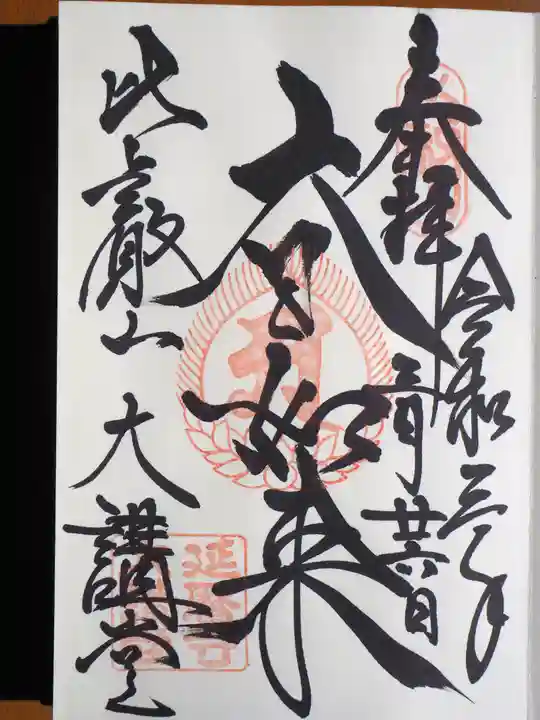 奉拝
令和三年
三月廿六日
大日如来
比叡山 大講堂
延暦寺